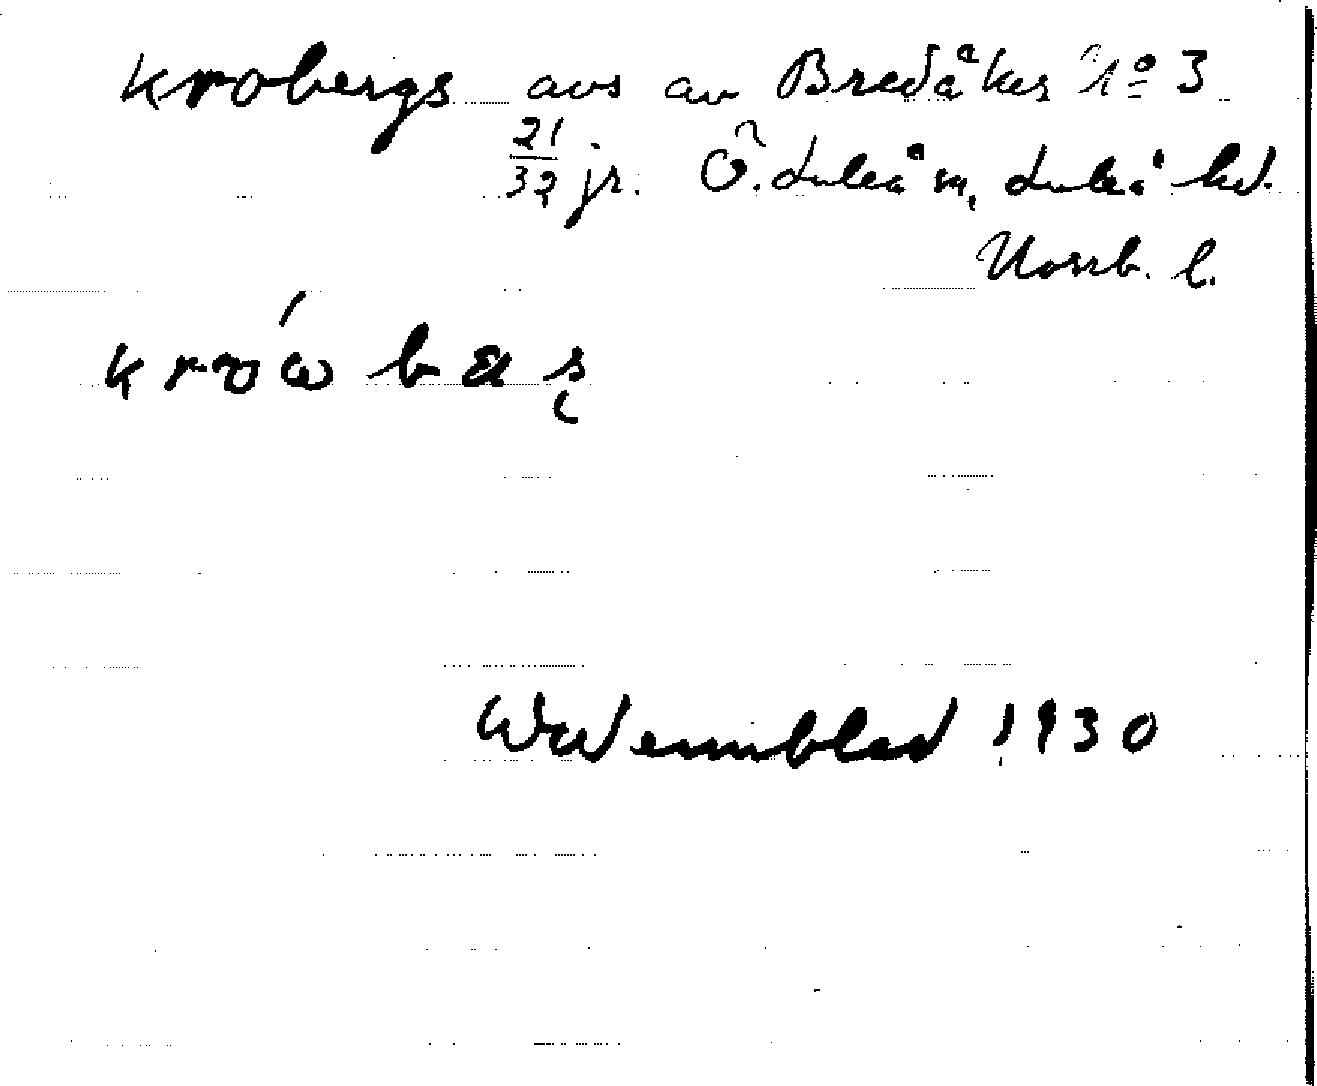 Krobergs avs av Bredåker no 3
21/32 jr. Ö. Luleå sn, Luleå hd.
Norrb. l.
Wennblad 1930